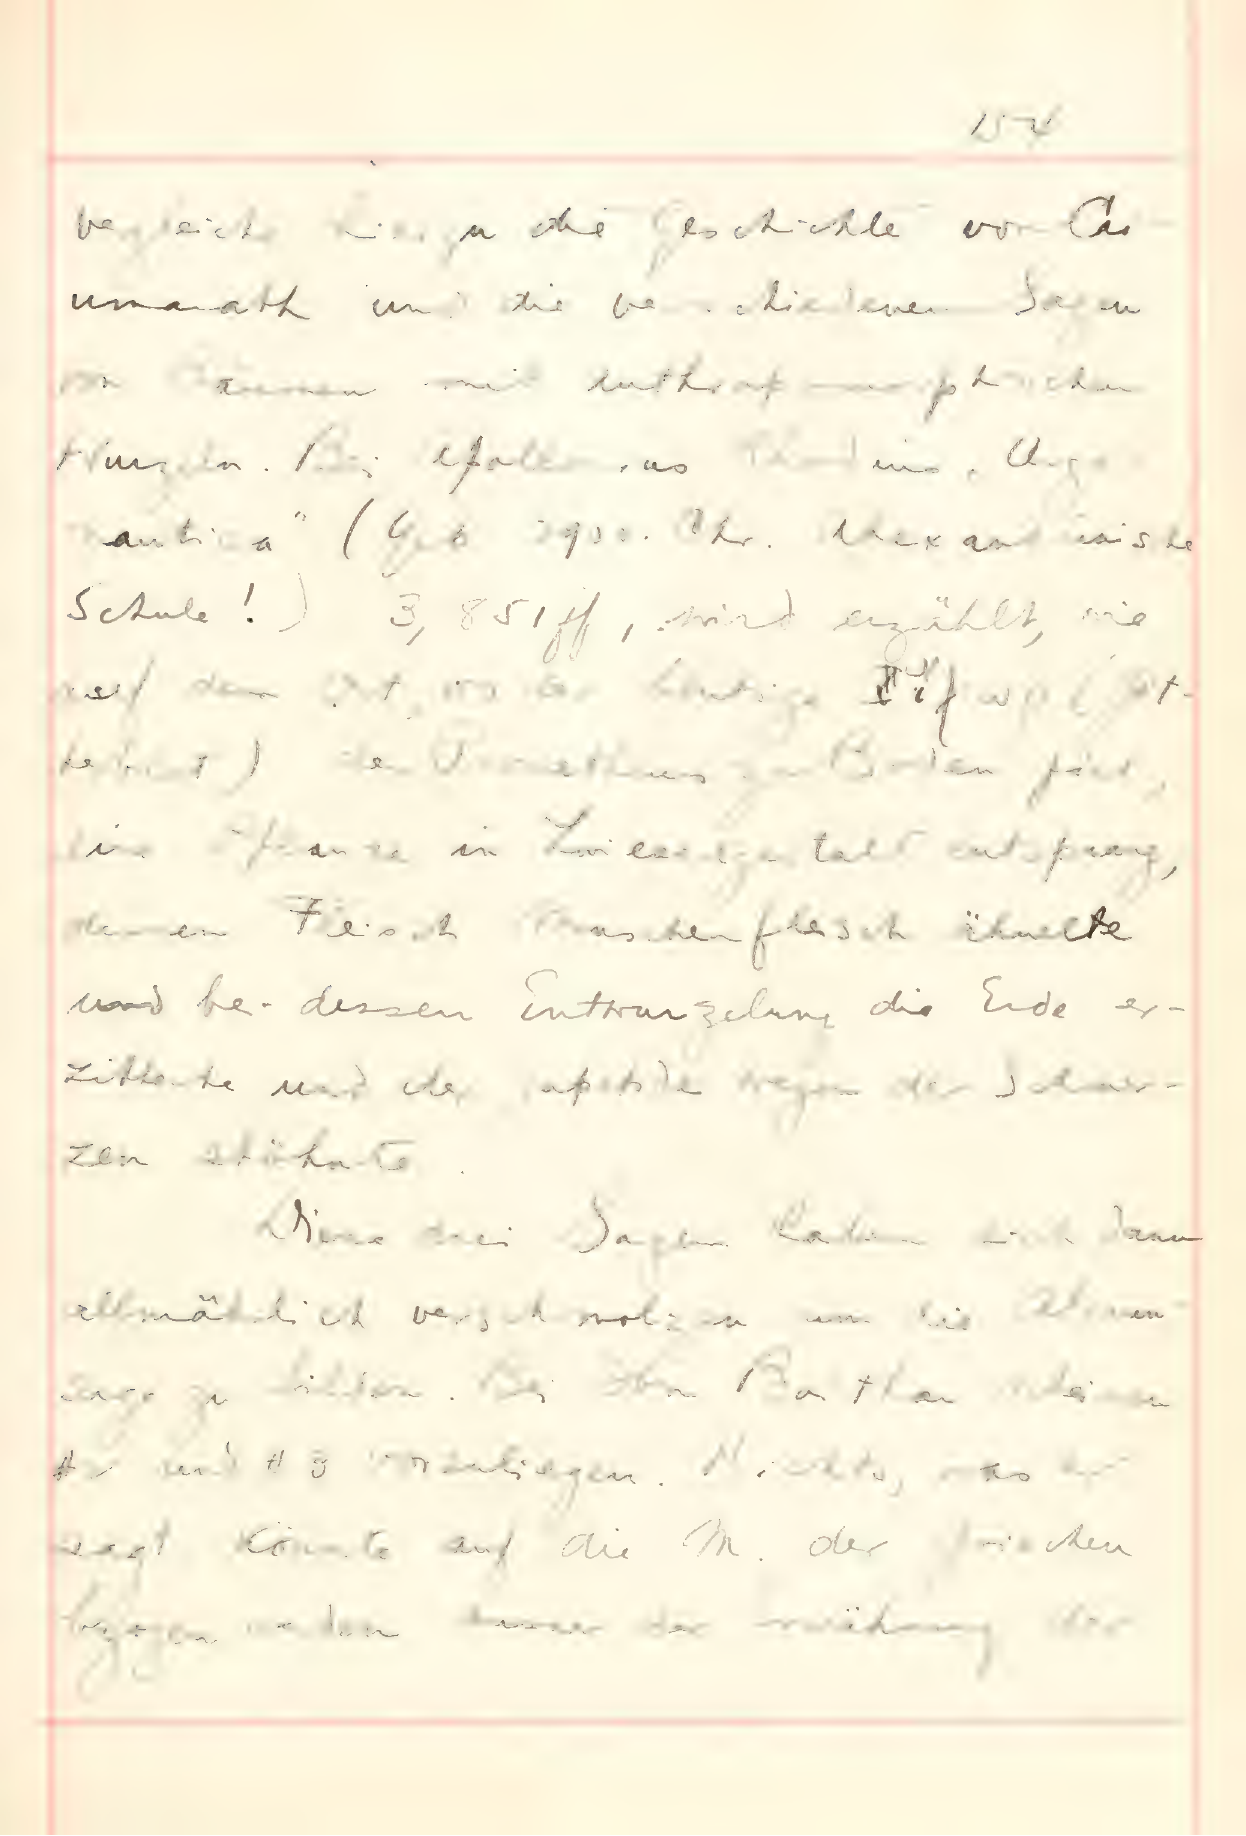 154
vergleiche hierzu die Geschichte von
umarath und die verschiedenen Sagen
von Bäumen mit anthropomorphischen
Wurzeln. Bei Apollonius Rhodius, "Argo-
nautica" ( Chr. Alexandrinische
Schule!) 3, 851ff, wird erzählt, wie
auf dem Ort, wo der blutige
) des Prometheus zu Boden fiel,
eine Pflanze in entsprang,
deren Fleisch Menschenfleisch ähnelte
und bei dessen Entwurzelung die Erde er-
zitterte und der wegen der Schmer-
zen stöhnte.
Diese drei Sagen haben sich dann
allmählich verschmolzen um die Alraun-
sage zu bilden. Bei Ibn Baithar scheinen
und # 3 vorzuliegen. Nichts, was er
sagt könnte auf die M. der Griechen
bezogen werden ausser der Erwähnung der